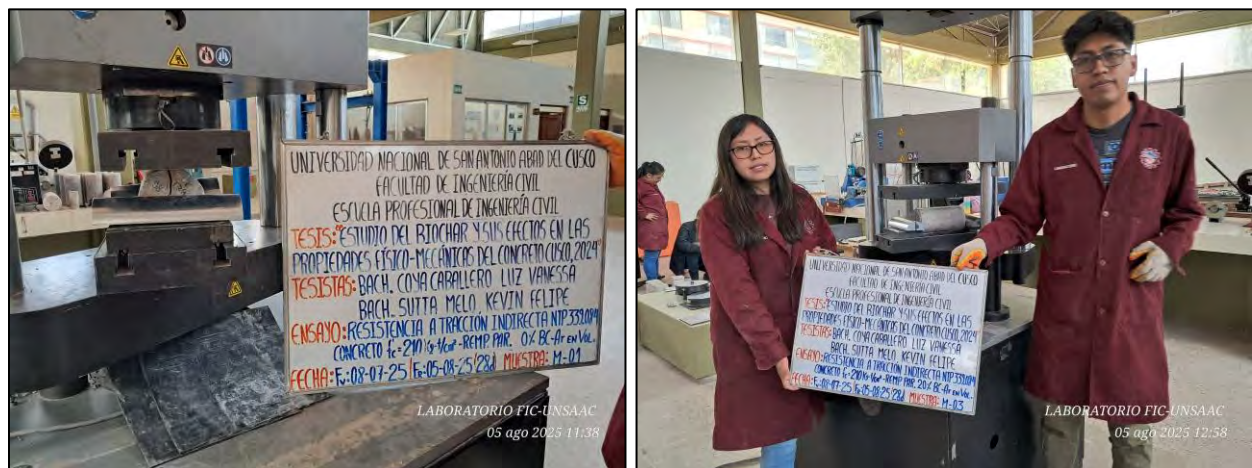 UNIVERSIDAD NACIONAL DE SAN ANTONIO ABAD DEL CUSCO
FACULTAD DE INGENIERÍA CIVIL
ESCUELA PROFESIONAL DE INGENIERÍA CIVIL
TESIS: "ESTUDIO DEL BIOCHAR Y SUS EFECTOS EN LAS
PROPIEDADES FÍSICO-MECÁNICAS DEL CONCRETO, CUSCO, 2024"
TESISTAS: BACH. COYA CABALLERO LUZ VANESSA
BACH. SUTTA MELO KEVIN FELIPE
ENSAYO: RESISTENCIA A TRACCIÓN INDIRECTA NTP 339.084
CONCRETO f'c=210 Kg-f/cm²-REMP. PAR. 0% BC-Ar en Vol.
FECHA: Fv:08-07-25 FR:05-08-25/28d MUESTRA: M-01
LABORATORIO FIC-UNSAAC
05 ago 2025 11:38
S
UNIVERSIDAD NACIONAL DE SAN ANTONIO ABAD DEL CUSCO
FACULTAD DE INGENIERÍA CIVIL
ESCUELA PROFESIONAL DE INGENIERÍA CIVIL
TESIS: "ESTUDIO DEL BIOCHAR Y SUS EFECTOS EN LAS
PROPIEDADES FÍSICO-MECÁNICAS DEL CONCRETO, CUSCO, 2024"
TESISTAS: BACH. COYA CABALLERO LUZ VANESSA
BACH. SUTTA MELO KEVIN FELIPE
ENSAYO: RESISTENCIA A TRACCIÓN INDIRECTA NTP 339.084
CONCRETO f'c=210 Kg-f/cm²-REMP. PAR. 20% BC-Ar en Vol.
FECHA: Fv:08-07-25 FR:05-08-25/28d MUESTRA: M-03
LABORATORIO FIC-UNSAAC
05 ago 2025 12:58